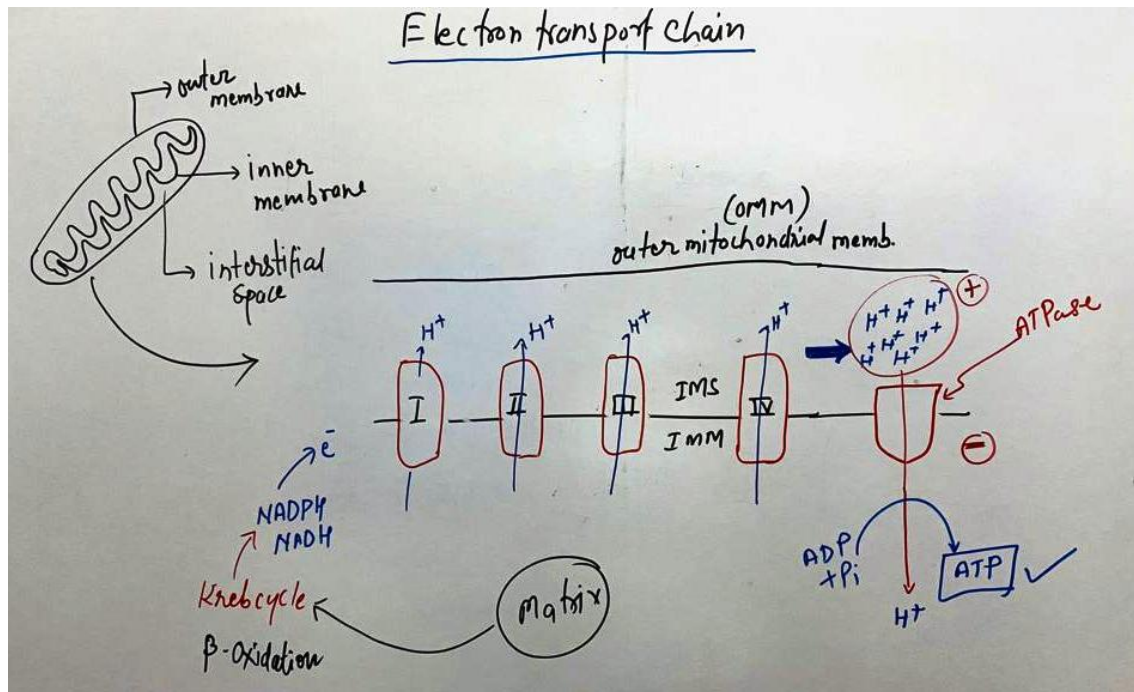 Electron transport chain
outer
membrane
inner
membrane
interstitial
space
(OMM)
outer mitochondrial memb.
H+
H+
H+
H+
H+ H+ H+
H+ H+ H+
H+
+
ATPase
I
II
III
IMS
IMM
IV
-
e-
NADPH
NADH
Krebcycle
β-Oxidation
Matrix
ADP
+Pi
ATP
H+